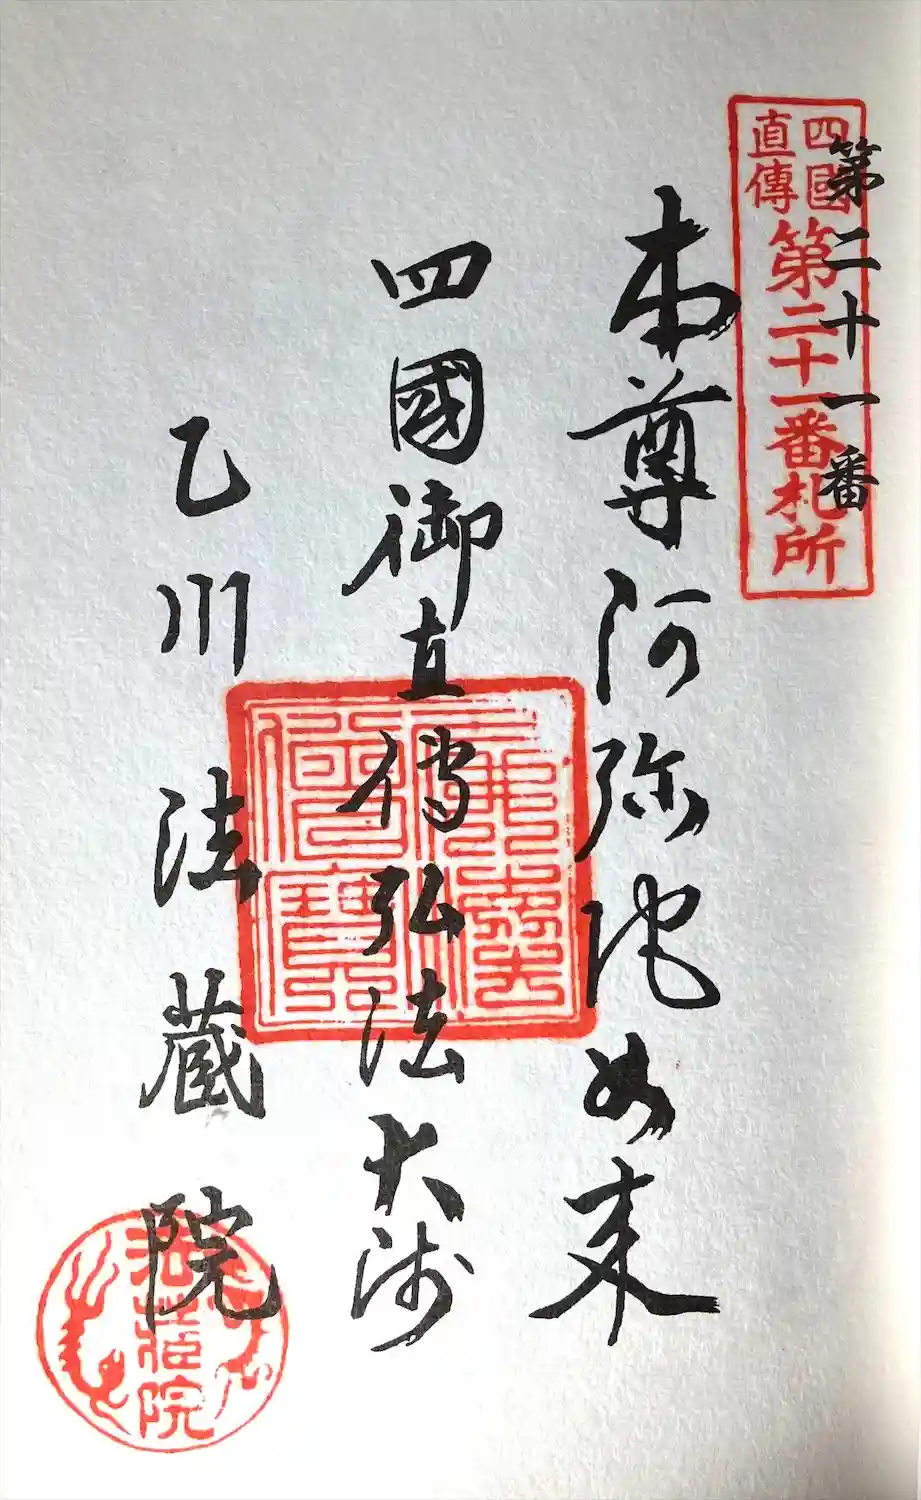 四國
直傳
第二十一番札所
第二十一番
本尊阿弥陀如来
四國御直傳弘法大師
乙川法蔵院
佛法僧寶
法蔵院